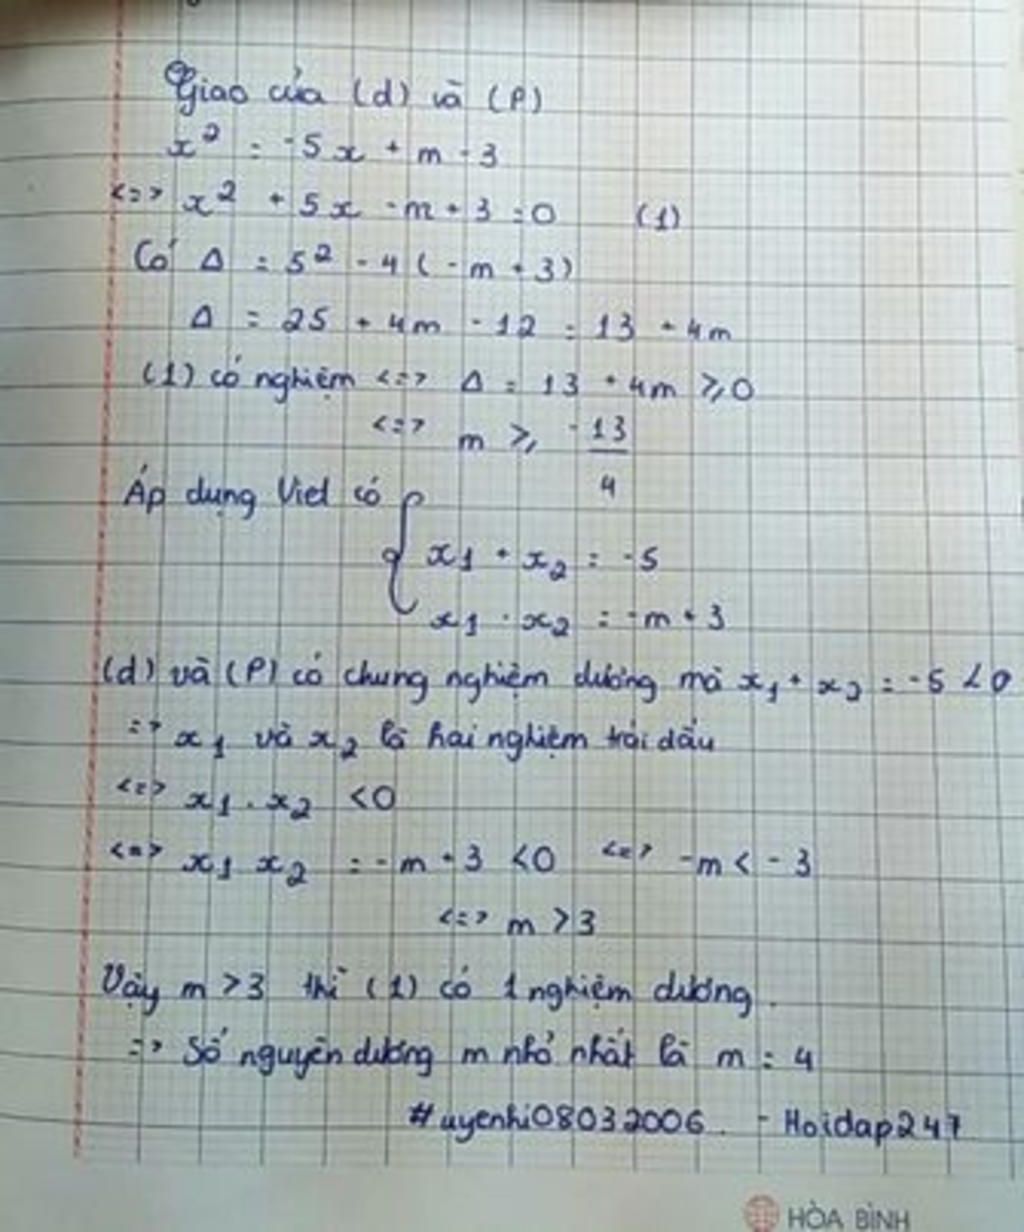 Giao của (d) và (P)
x² = -5x + m - 3
<=> x² + 5x - m + 3 = 0 (1)
Có Δ = 5² - 4(-m + 3)
Δ = 25 + 4m - 12 = 13 + 4m
(1) có nghiệm <=> Δ = 13 + 4m ≥ 0
<=> m ≥ -13/4
Áp dụng Viet có { x1 + x2 = -5
x1 . x2 = -m + 3
(d) và (P) có chung nghiệm dương mà x1 + x2 = -5 < 0
=> x1 và x2 là hai nghiệm trái dấu
<=> x1 . x2 < 0
<=> x1 x2 = -m + 3 < 0 <=> -m < -3
<=> m > 3
Vậy m > 3 thì (1) có 1 nghiệm dương.
=> Số nguyên dương m nhỏ nhất là m = 4
#uyenhi08032006. - Hoidap247
HÒA BÌNH